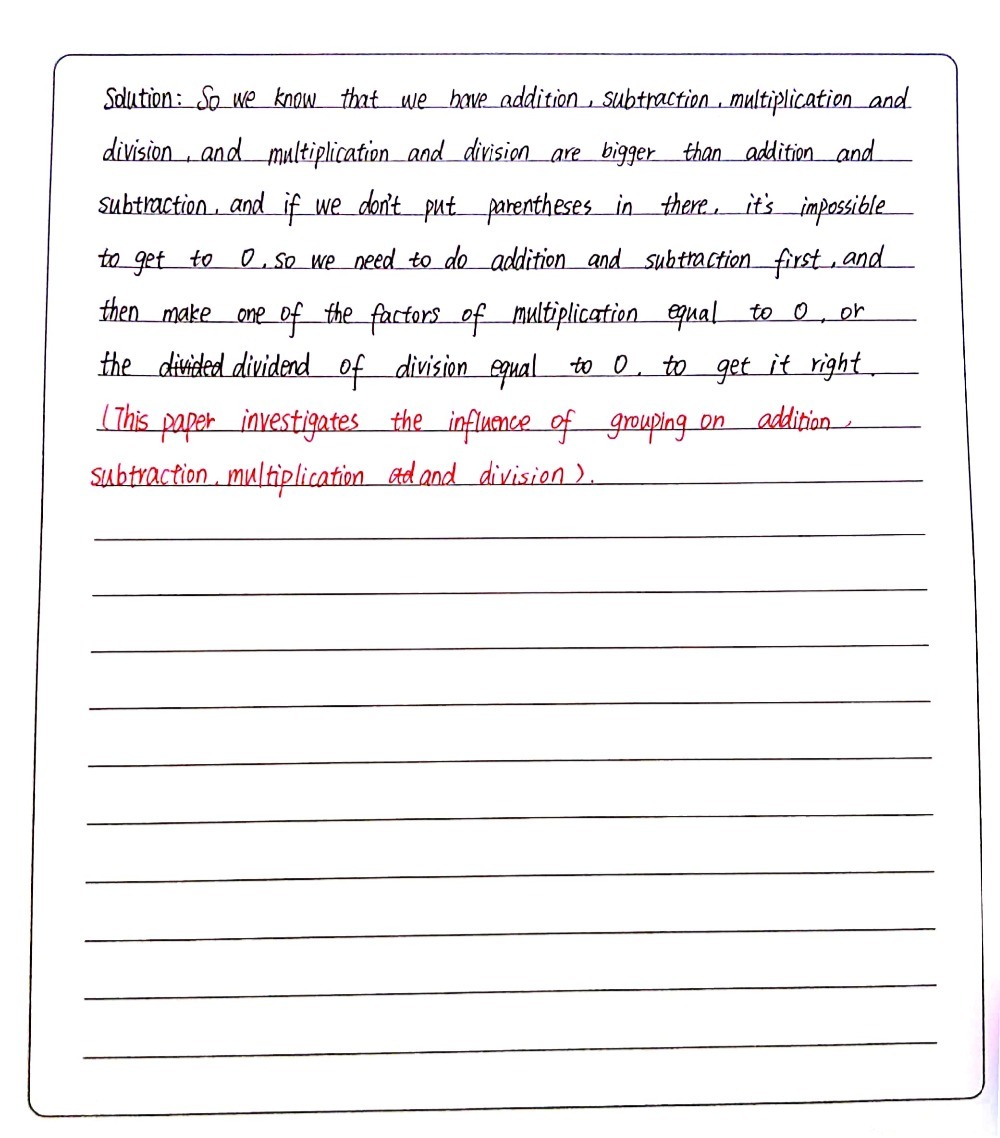 Solution: So we know that we have addition, subtraction, multiplication and
division, and multiplication and division are bigger than addition and
subtraction, and if we don't put parentheses in there, it's impossible
to get to 0, so we need to do addition and subtraction first, and
then make one of the factors of multiplication equal to 0, or
the divided dividend of division equal to 0, to get it right.
(This paper investigates the influence of grouping on addition,
subtraction, multiplication ad and division).